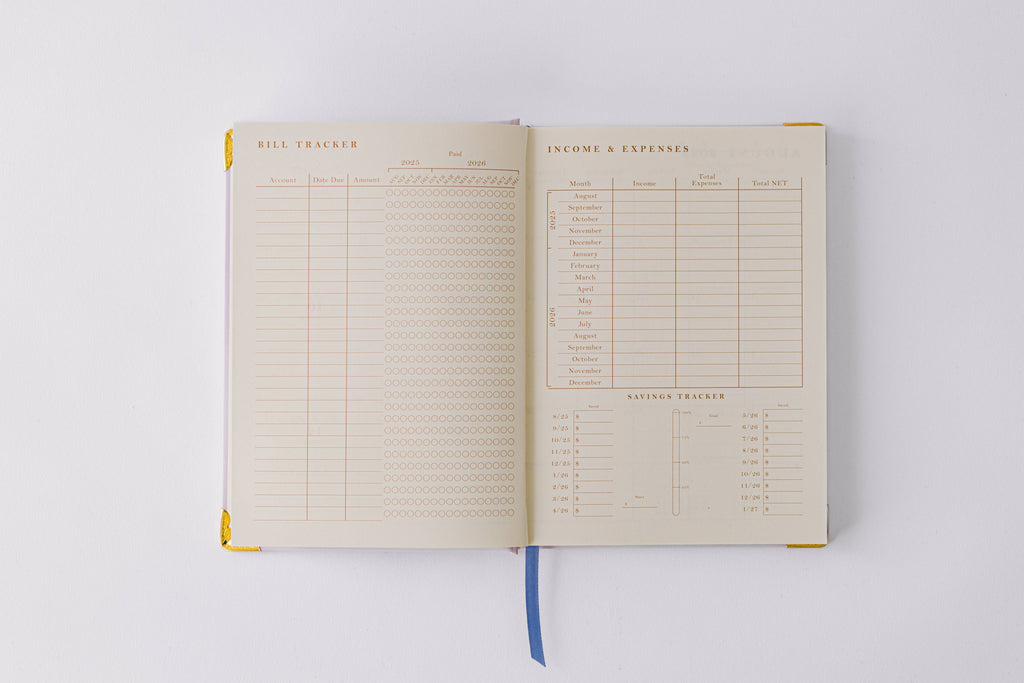 BILL TRACKER
Paid
2025 2026
Account Date Due Amount AUG SEP OCT NOV DEC JAN FEB MAR APR MAY JUN JUL AUG SEP OCT NOV DEC
INCOME & EXPENSES
Month Income Total Expenses Total NET
2025
August
September
October
November
December
2026
January
February
March
April
May
June
July
August
September
October
November
December
SAVINGS TRACKER
Saved
8/25 $
9/25 $
10/25 $
11/25 $
12/25 $
1/26 $
2/26 $
3/26 $
4/26 $
Goal
$
$
Saved
5/26 $
6/26 $
7/26 $
8/26 $
9/26 $
10/26 $
11/26 $
12/26 $
1/27 $